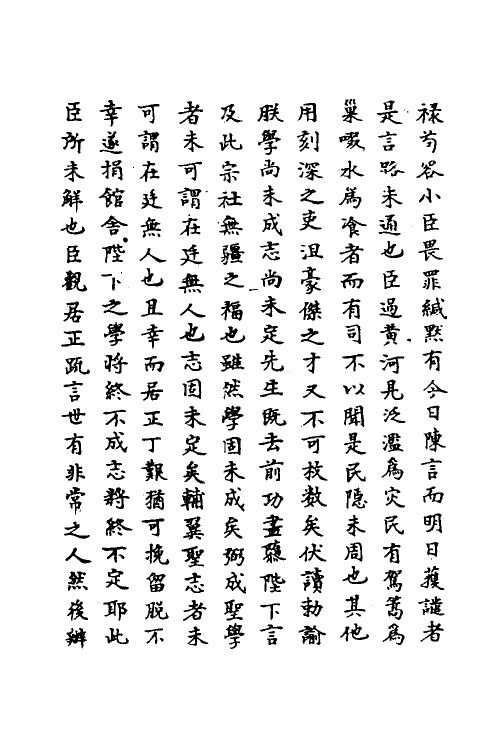 禄苟容小臣畏罪緘黙有今日陳言而明日獲譴者
是言路未通也臣過黄河見泛濫為灾民有駕蒿為
巢啜水為飡者而有司不以聞是民隐未周也其他
用刻深之吏沮豪傑之才又不可枚数矣伏讀勅諭
朕學尚未成志尚未定先生既去前功盡隳陛下言
及此宗社無疆之福也雖然學固未成矣弼成聖學
者未可謂在廷無人也志固未定矣輔翼聖志者未
可謂在廷無人也且幸而居正丁艱猶可挽留脱不
幸遂捐館舎陛下之學将終不成志将終不定耶此
臣所未解也臣觀居正疏言世有非常之人然後辦